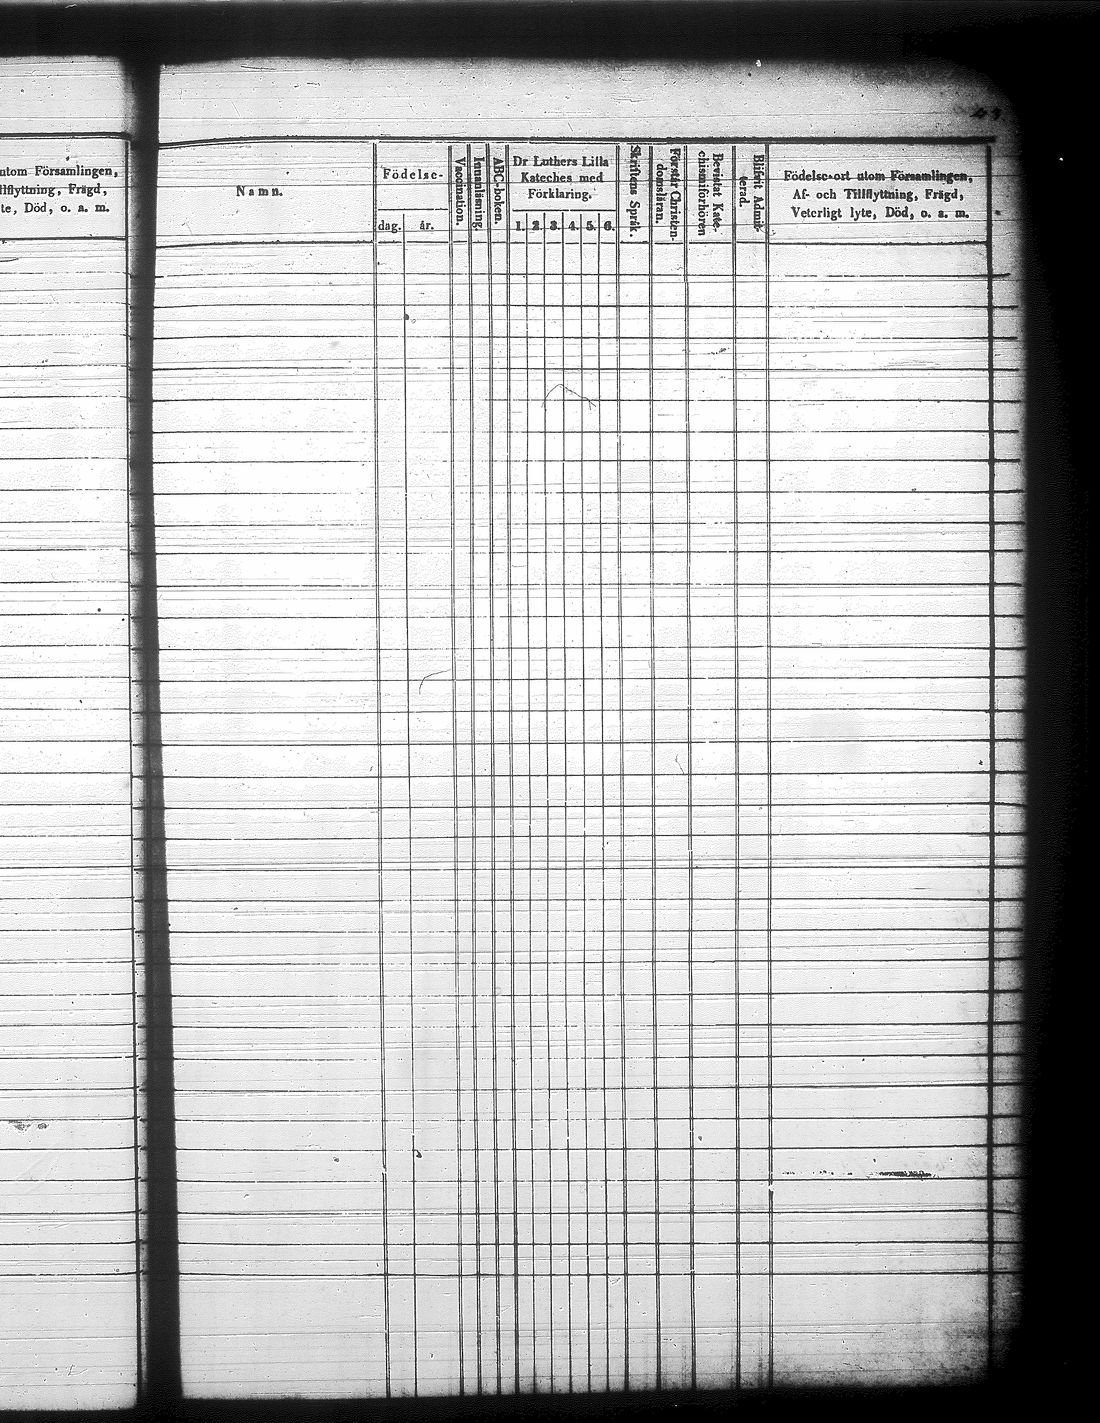 utom Församlingen,
llflyttning, Frägd,
te, Död, o. a. m.
Namn.
Födelse-
dag.
år.
Vaccination.
Innanläsning.
ABC-boken.
Dr Luthers Lilla
Kateches med
Förklaring.
1. 2. 3. 4. 5. 6.
Skriftens Språk.
Förstår Christen-
domsläran.
Bevistat Kate-
chismiförhören
Blifvit Admit-
terad.
Födelse-ort utom Församlingen,
Af- och Tillflyttning, Frägd,
Veterligt lyte, Död, o. a. m.